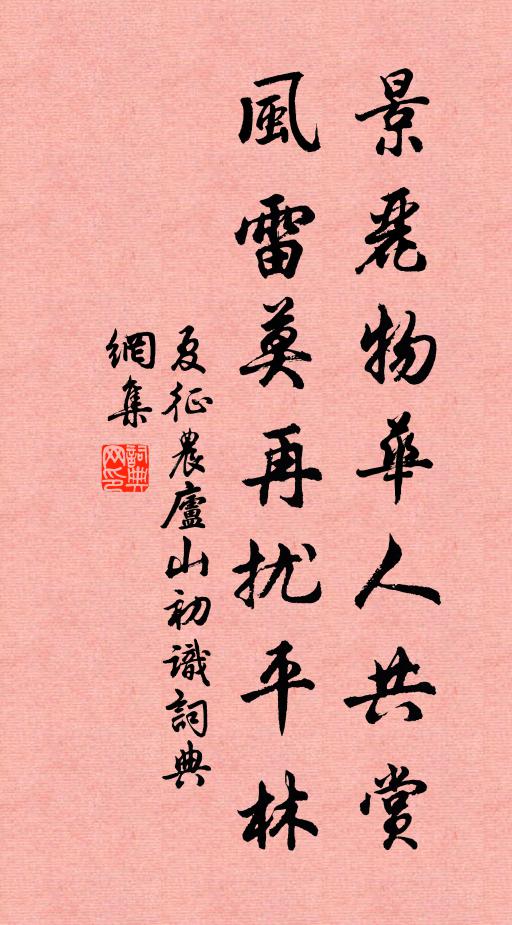 景麗物華人共賞
風雷莫再扰平林
夏征農廬山初識詞典
網集
詞典
网印